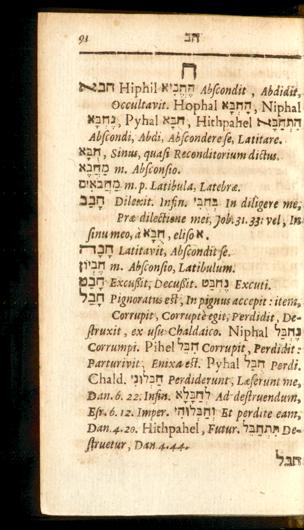 91 חב
ח
חבא Hiphil הֶחְבִּיא Abscondit, Abdidit,
Occultavit. Hophal הָחְבָּא, Niphal
נֶחְבָּא, Pyhal חֻבָּא, Hithpahel הִתְחַבֵּא
Abscondi, Abdi, Abscondere se, Latitare.
חֻבָּא, Sinus, quasi Reconditorium dictus.
מַחֲבֵא m. Absconsio.
מַחֲבֹאִים m. p. Latibula, Latebræ.
חָבַב Dilexit. Infin. בְּחֻבִּי In diligere me,
Præ dilectione mei, Job. 31. 33: vel, In
sinu meo, à חֻבָּא, eliso א.
חָבָה Latitavit, Abscondit se.
חֶבְיוֹן m. Absconsio, Latibulum.
חָבַט Excussit, Decussit. נֶחְבַּט Excuti.
חָבַל Pignoratus est, In pignus accepit: item,
Corrupit, Corruptè egit, Perdidit, De-
struxit, ex usu Chaldaico. Niphal נֶחְבַּל
Corrumpi. Pihel חִבֵּל Corrupit, Perdidit:
Parturivit, Enixa est. Pyhal חֻבַּל Perdi.
Chald. חַבְּלוּנִי Perdiderunt, Læserunt me,
Dan. 6. 22. Infin. לְחַבָּלָא Ad destruendum,
Esr. 6. 12. Imper. וְחַבְּלוּהִי Et perdite eam,
Dan. 4. 20. Hithpahel, Futur. תִּתְחַבַּל De-
struetur, Dan. 4. 44.
חבל